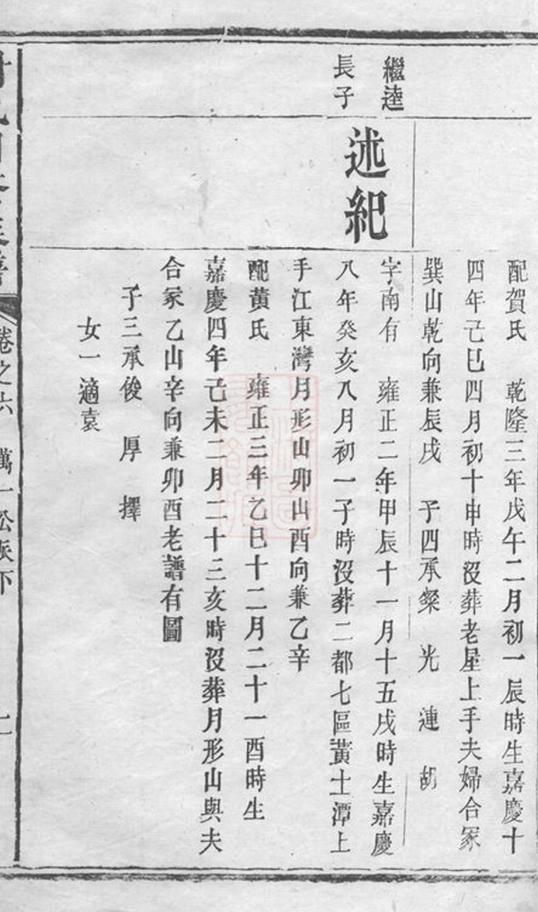 配賀氏　乾隆三年戊午二月初一辰時生嘉慶十
四年己巳四月初十申時沒葬老屋上手夫婦合冢
巽山乾向兼辰戌　子四承粲　光　連　胡
繼逵
長子
述紀
字南有　雍正二年甲辰十一月十五戌時生嘉慶
八年癸亥八月初一子時沒葬二都七區黃土潭上
手江東灣月形山卯山酉向兼乙辛
配黃氏　雍正三年乙巳十二月二十一酉時生
嘉慶四年己未二月二十三亥時沒葬月形山與夫
合冢乙山辛向兼卯酉老譜有圖
子三承俊　厚　擇
女一適袁
卷之六　萬一公族下